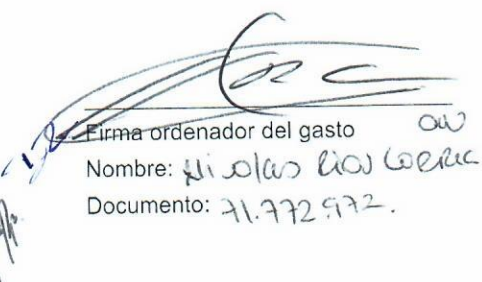 Firma ordenador del gasto
Nombre: Nicolas Rios Correa
Documento: 71.772.972.